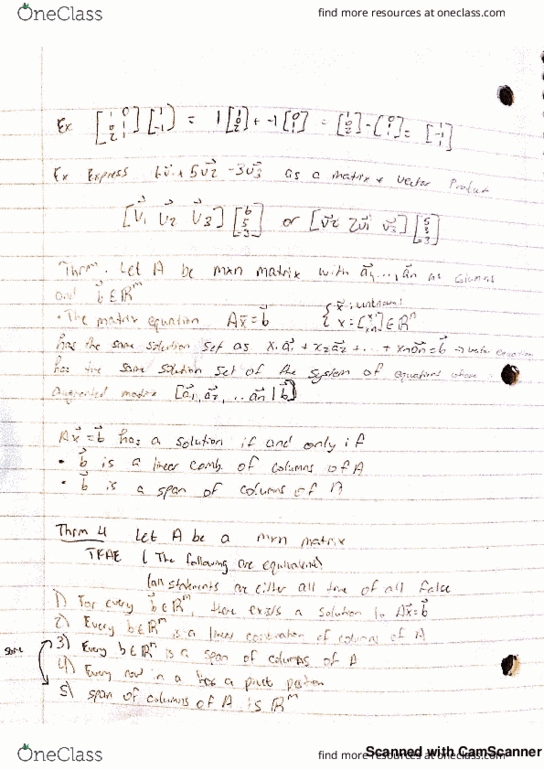 OneClass
find more resources at oneclass.com
Ex [1 0 1 1 2 1] [1 -1] = 1 [1 1 2] + -1 [0 1 1] = [1 1 2] - [0 1 1] = [1 -1 1]
Ex Express 6v⃗₁ + 5v⃗₂ - 3v⃗₃ as a matrix & vector Product
[v⃗₁ v⃗₂ v⃗₃] [6 5 -3] or
Thrm. Let A be mxn matrix with a⃗₁, ..., a⃗n as columns
and b⃗ ∈ ℝᵐ
• The matrix equation Ax⃗ = b⃗ { x⃗: unknown
∈ ℝⁿ
has the same solution set as x₁a⃗₁ + x₂a⃗₂ + ... + xna⃗n = b⃗ → vector equation
has the same solution set of the system of equations whose
augmented matrix [a⃗₁, a⃗₂, ... a⃗n | b⃗]
Ax⃗ = b⃗ has a solution if and only if
• b⃗ is a linear comb. of columns of A
• b⃗ is a span of columns of A
Thrm 4 Let A be a mxn matrix
TFAE ( The following are equivalent)
(all statements are either all true of all false
1) For every b⃗ ∈ ℝᵐ, there exists a solution to Ax⃗ = b⃗
2) Every b ∈ ℝᵐ is a linear combination of columns of A
same 3) Every b ∈ ℝᵐ is a span of columns of A
4) Every row in a has a pivot position
5) span of columns of A is ℝᵐ
Scanned with CamScanner
OneClass
find more resources at oneclass.com